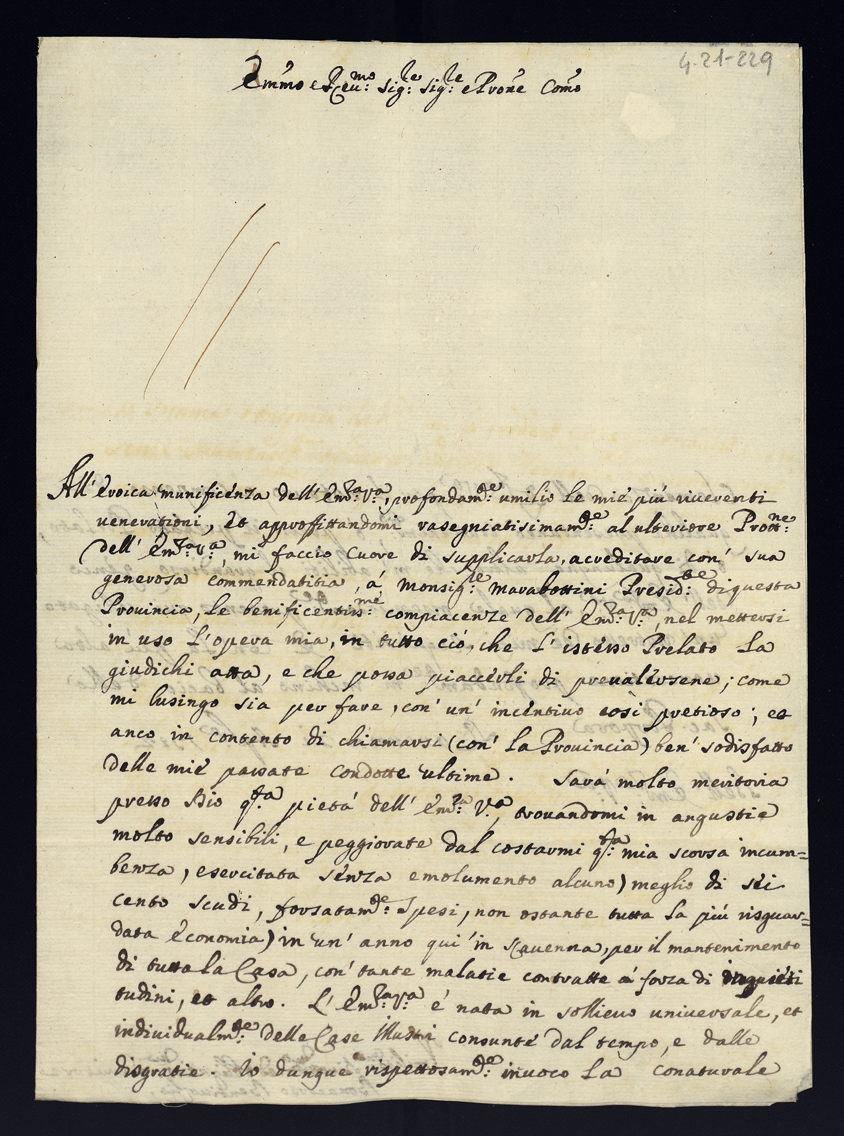 4-21-229
Em̃o e Reu:mo Sig:re Sig:re e Prõne Com̃o
All'eroica munificenza dell'Em:za V:a, profondam:te umilio le mie più riverenti
uenerationi, et approffittandomi rasegniatisimam:te al ulteriore Prott:ne
dell'Em:za V:a, mi faccio cuore di supplicarla, acreditare con' sua
generosa commendatitia, á Monsig:re Marabottini Presid:te di questa
Prouincia, le benificentiss:me compiacenze dell'Em:za V:a, nel mettersi
in uso l'opera mia, in tutto ció, che l'istesso Prelato la
giudichi atta, e che possa piacerli di preualersene; come
mi lusingo sia per fare, con' un' incentiuo così pretioso; et
anco in contento di chiamarsi (con' la Prouincia) ben' sodisfatto
delle mie passate condotte ultime. Sará molto meritoria
presso Dio q:sta pietá dell'Em:za V:a, trouandomi in angustie
molto sensibili, e peggiorate dal costarmi q:sta mia scorsa incum=
benza, esercitata senza emolumento alcuno) meglio di sei
cento scudi, forsatam:te spesi, non ostante tutta la più risguar=
data economia) in un' anno qui in Rauenna, per il mantenimento
di tutta la Casa, con' tante malatie contratte á forza di inquieti
tudini, et altro. L'Em:za V:a é nata in sollieuo uniuersale, et
indiuidualm:te delle Case illustri consunte dal tempo, e dalle
disgratie. Io dunque rispettosam:te inuoco la conaturale